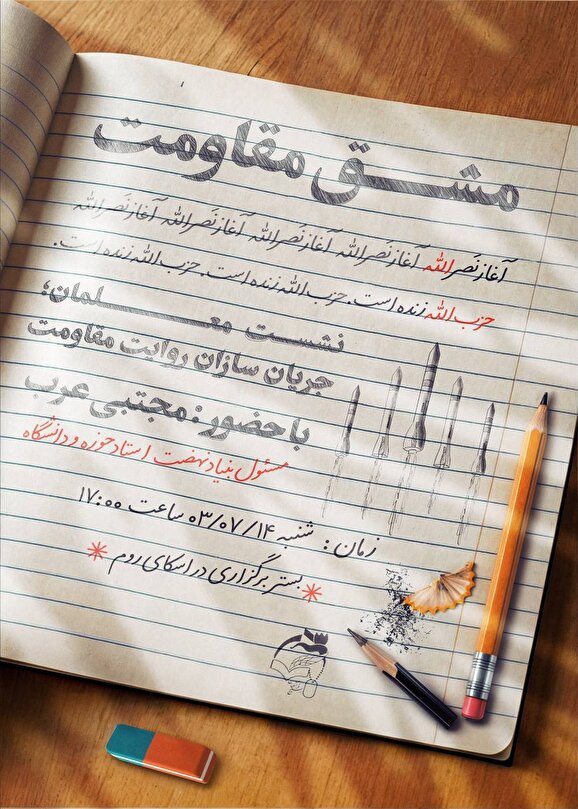 مشق مقاومت
آغاز نَصرالله آغاز نَصرالله آغاز نَصرالله آغاز نَصرالله آغاز نَصرالله
حزب‌الله زنده است. حزب‌الله زنده است. حزب‌الله زنده است.
نشست معلمان؛
جریان سازان روایت مقاومت
با حضور: مجتبی عرب
مسئول بنیاد نهضت استاد حوزه و دانشگاه
زمان: شنبه ۰۳/۰۷/۱۴ ساعت ۱۷:۰۰
* بستر برگزاری در اسکای روم *